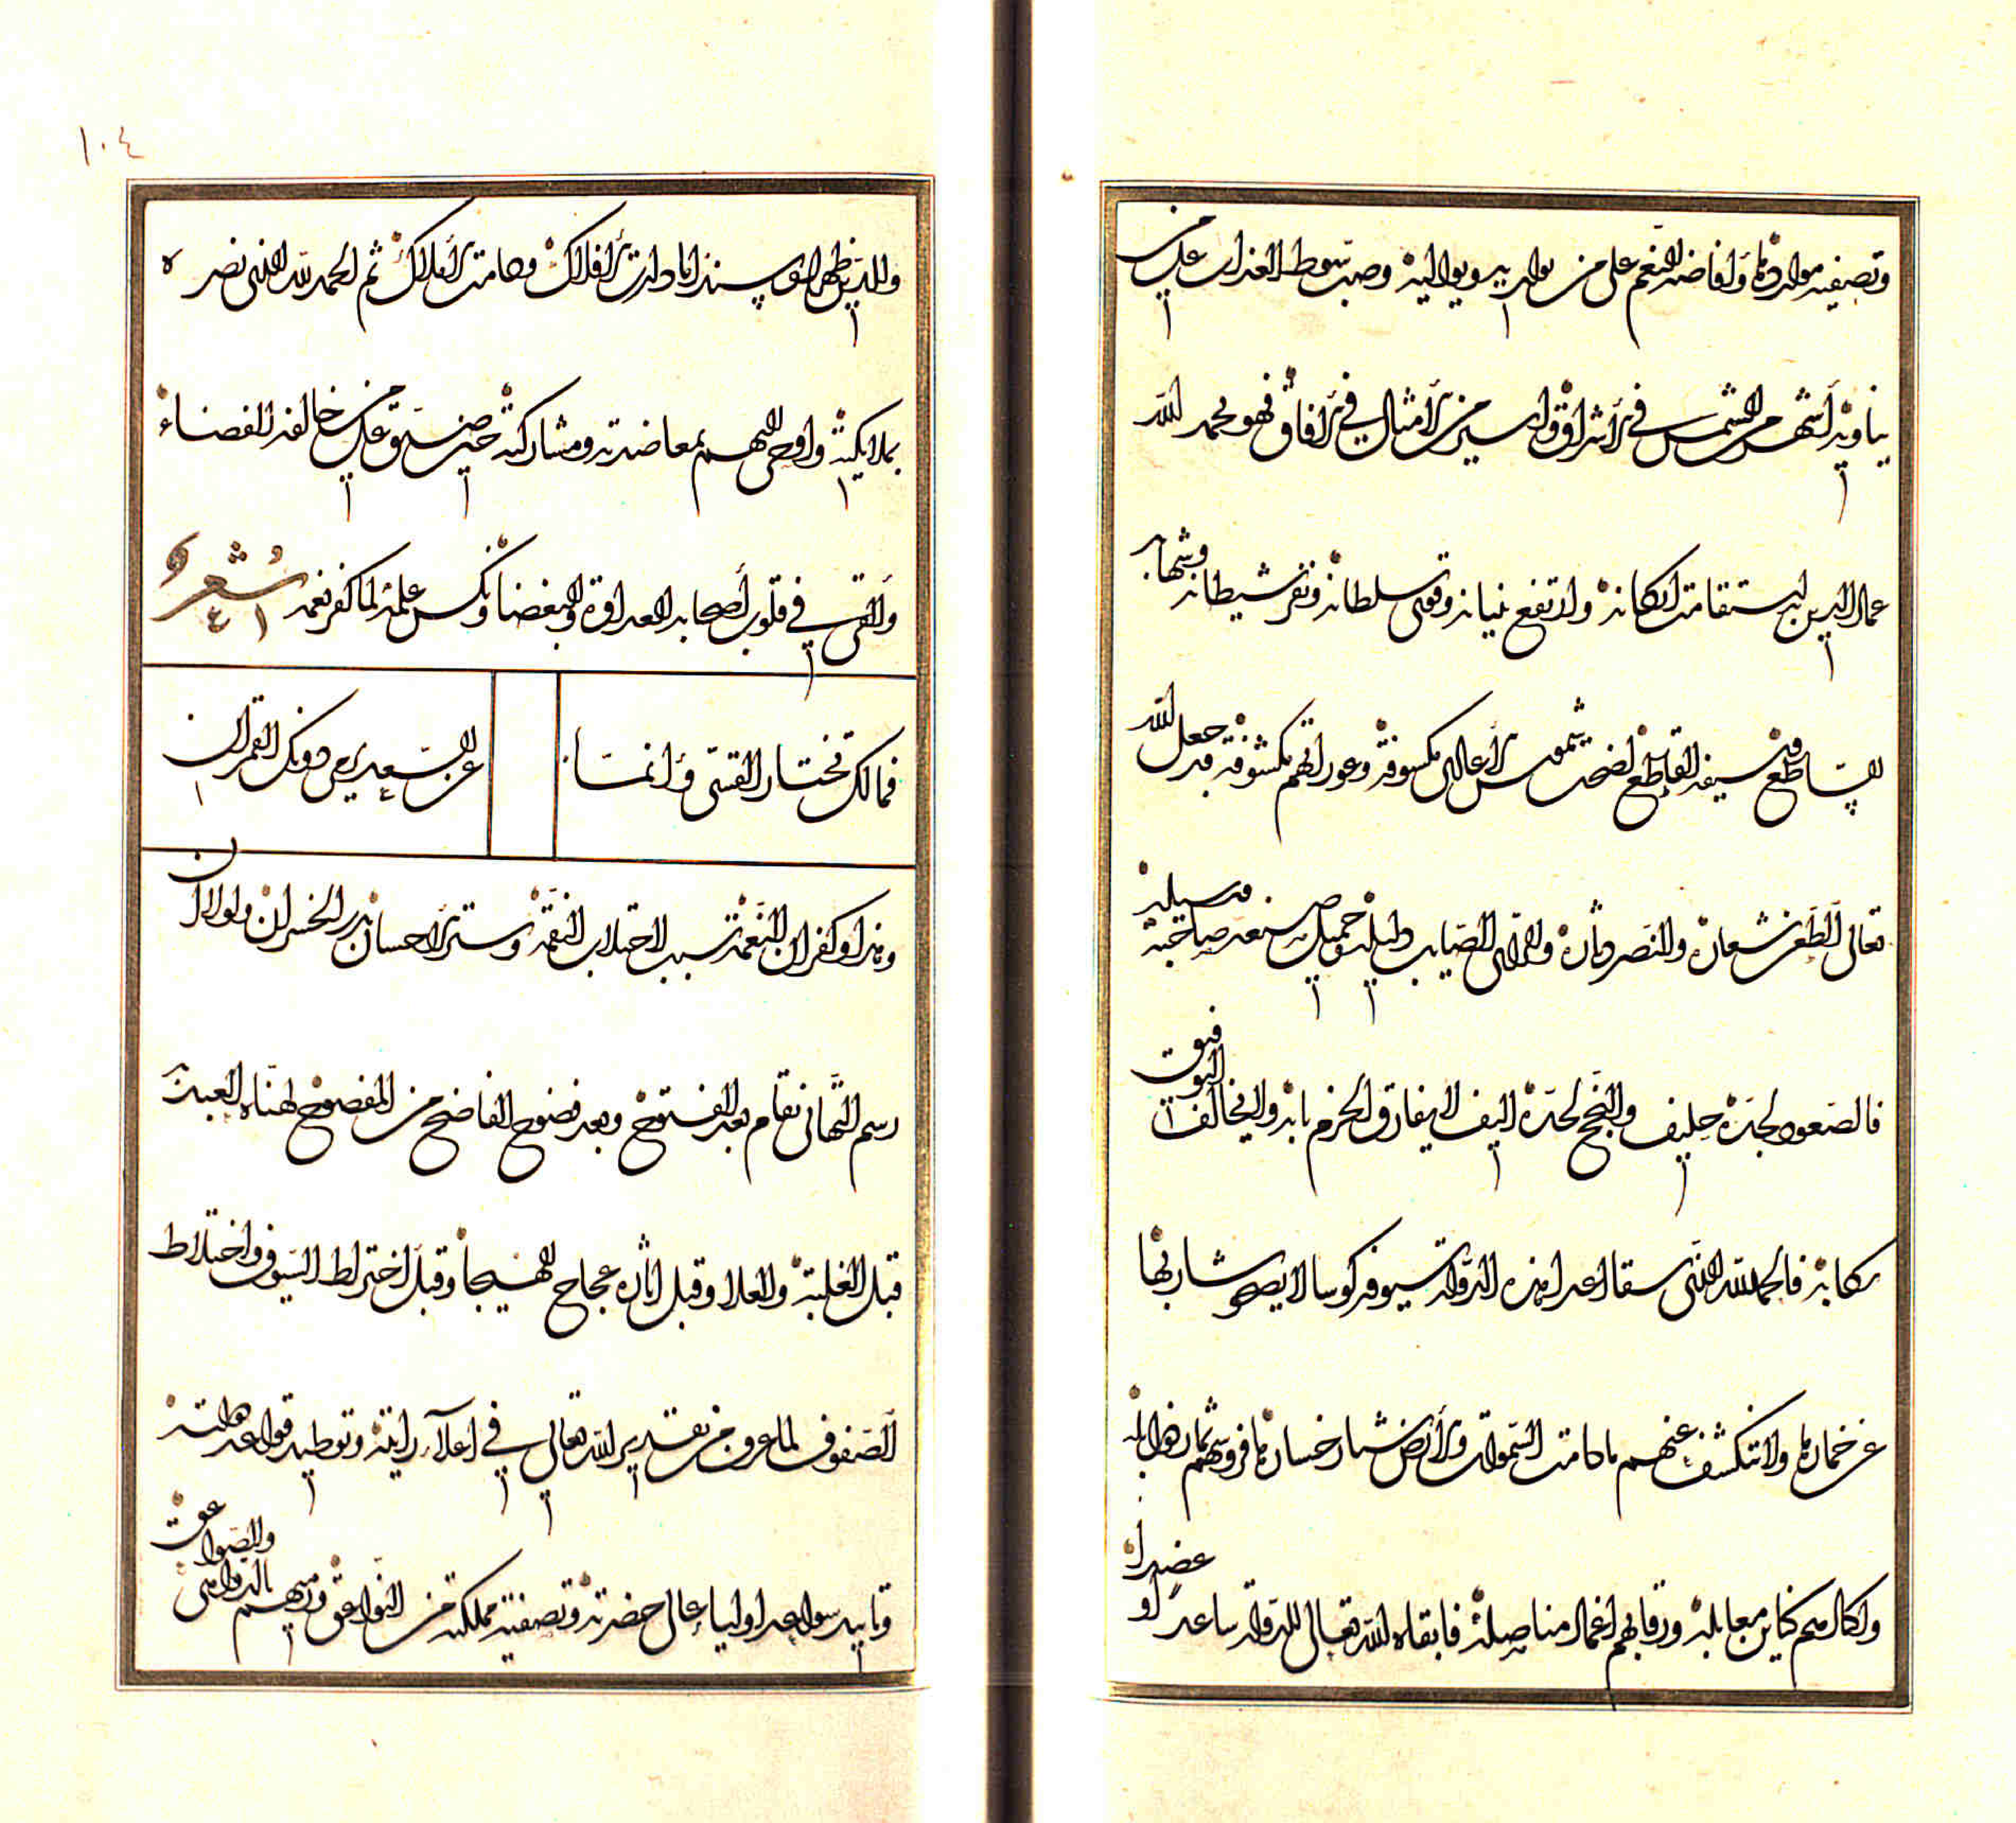 وتصفيه مواردها وافاضه النعم على من يواد به ويواليه وصب سوط العذاب على من
يناويه أشهر من الشمس في الأشراق واسير من الأمثال في الآفاق فهو بحمد الله
عماد الدين به استقامت اركانه وارتفع بنيانه وقوى سلطانه ونفر شيطانه وشهابه
الساطع سيفه القاطع اضحت شموس الأعادي مكسوفة وعوراتهم مكشوفة قد جعل الله
تعالى الظفر شعاره والنصر دثاره والرأى الصايب دليله وجميل صنعه صاحبه وسبيله
فالصعود لجده حليف والنجح لجده اليف لا يفارق الحزم بابه ولا يخالف التوفيق
ركابه فالحمد لله الذى سقا اعدا هذه الدولة بسيوفه كوسا لا يصحو شاربها
عن خمارها ولا تنكشف عنهم ما دامت السموات والأرض خسارها فروسهم ثمار ذوابله
واكبادهم كناين معابله ورقابهم اغماد مناصله فابقاه الله تعالى للدولة ساعدا وعضدا
وللدين ظهرا وسندا ما دارت الأفلاك ودامت الأملاك ثم الحمد لله الذى نصره
بملايكته واوحى اليهم بمعاضدته ومشاركته حين ضيق على من خالفه الفضاء
وألقى في قلوب أصحابه العداوة والبغضا ونكس علمه لما كفر نعمه شعر
فمالك تختار القسى وانما
عن السعد يرمى دونك القمران
وبدا وكفران النعمة سبب لاجتلاب النقمة وستر الاحسان بذر الخسران ولولا ان
رسم التهانى تقام بعد الفتوح وبعد فضوح الفاضح من المفضوح لهناه العبد
قبل الغلبة والعلا وقبل اثاره عجاج الهيجا وقبل اختراط السيوف واختلاط
الصفوف لما عرف من تقدير الله تعالى في اعلاء رايته وتوطيد قواعد دولته
وتاييد سواعد اوليا عالى حضرته وتصفية مملكته من النواعق ورميهم بالدواهى والصواعق
١٠٤